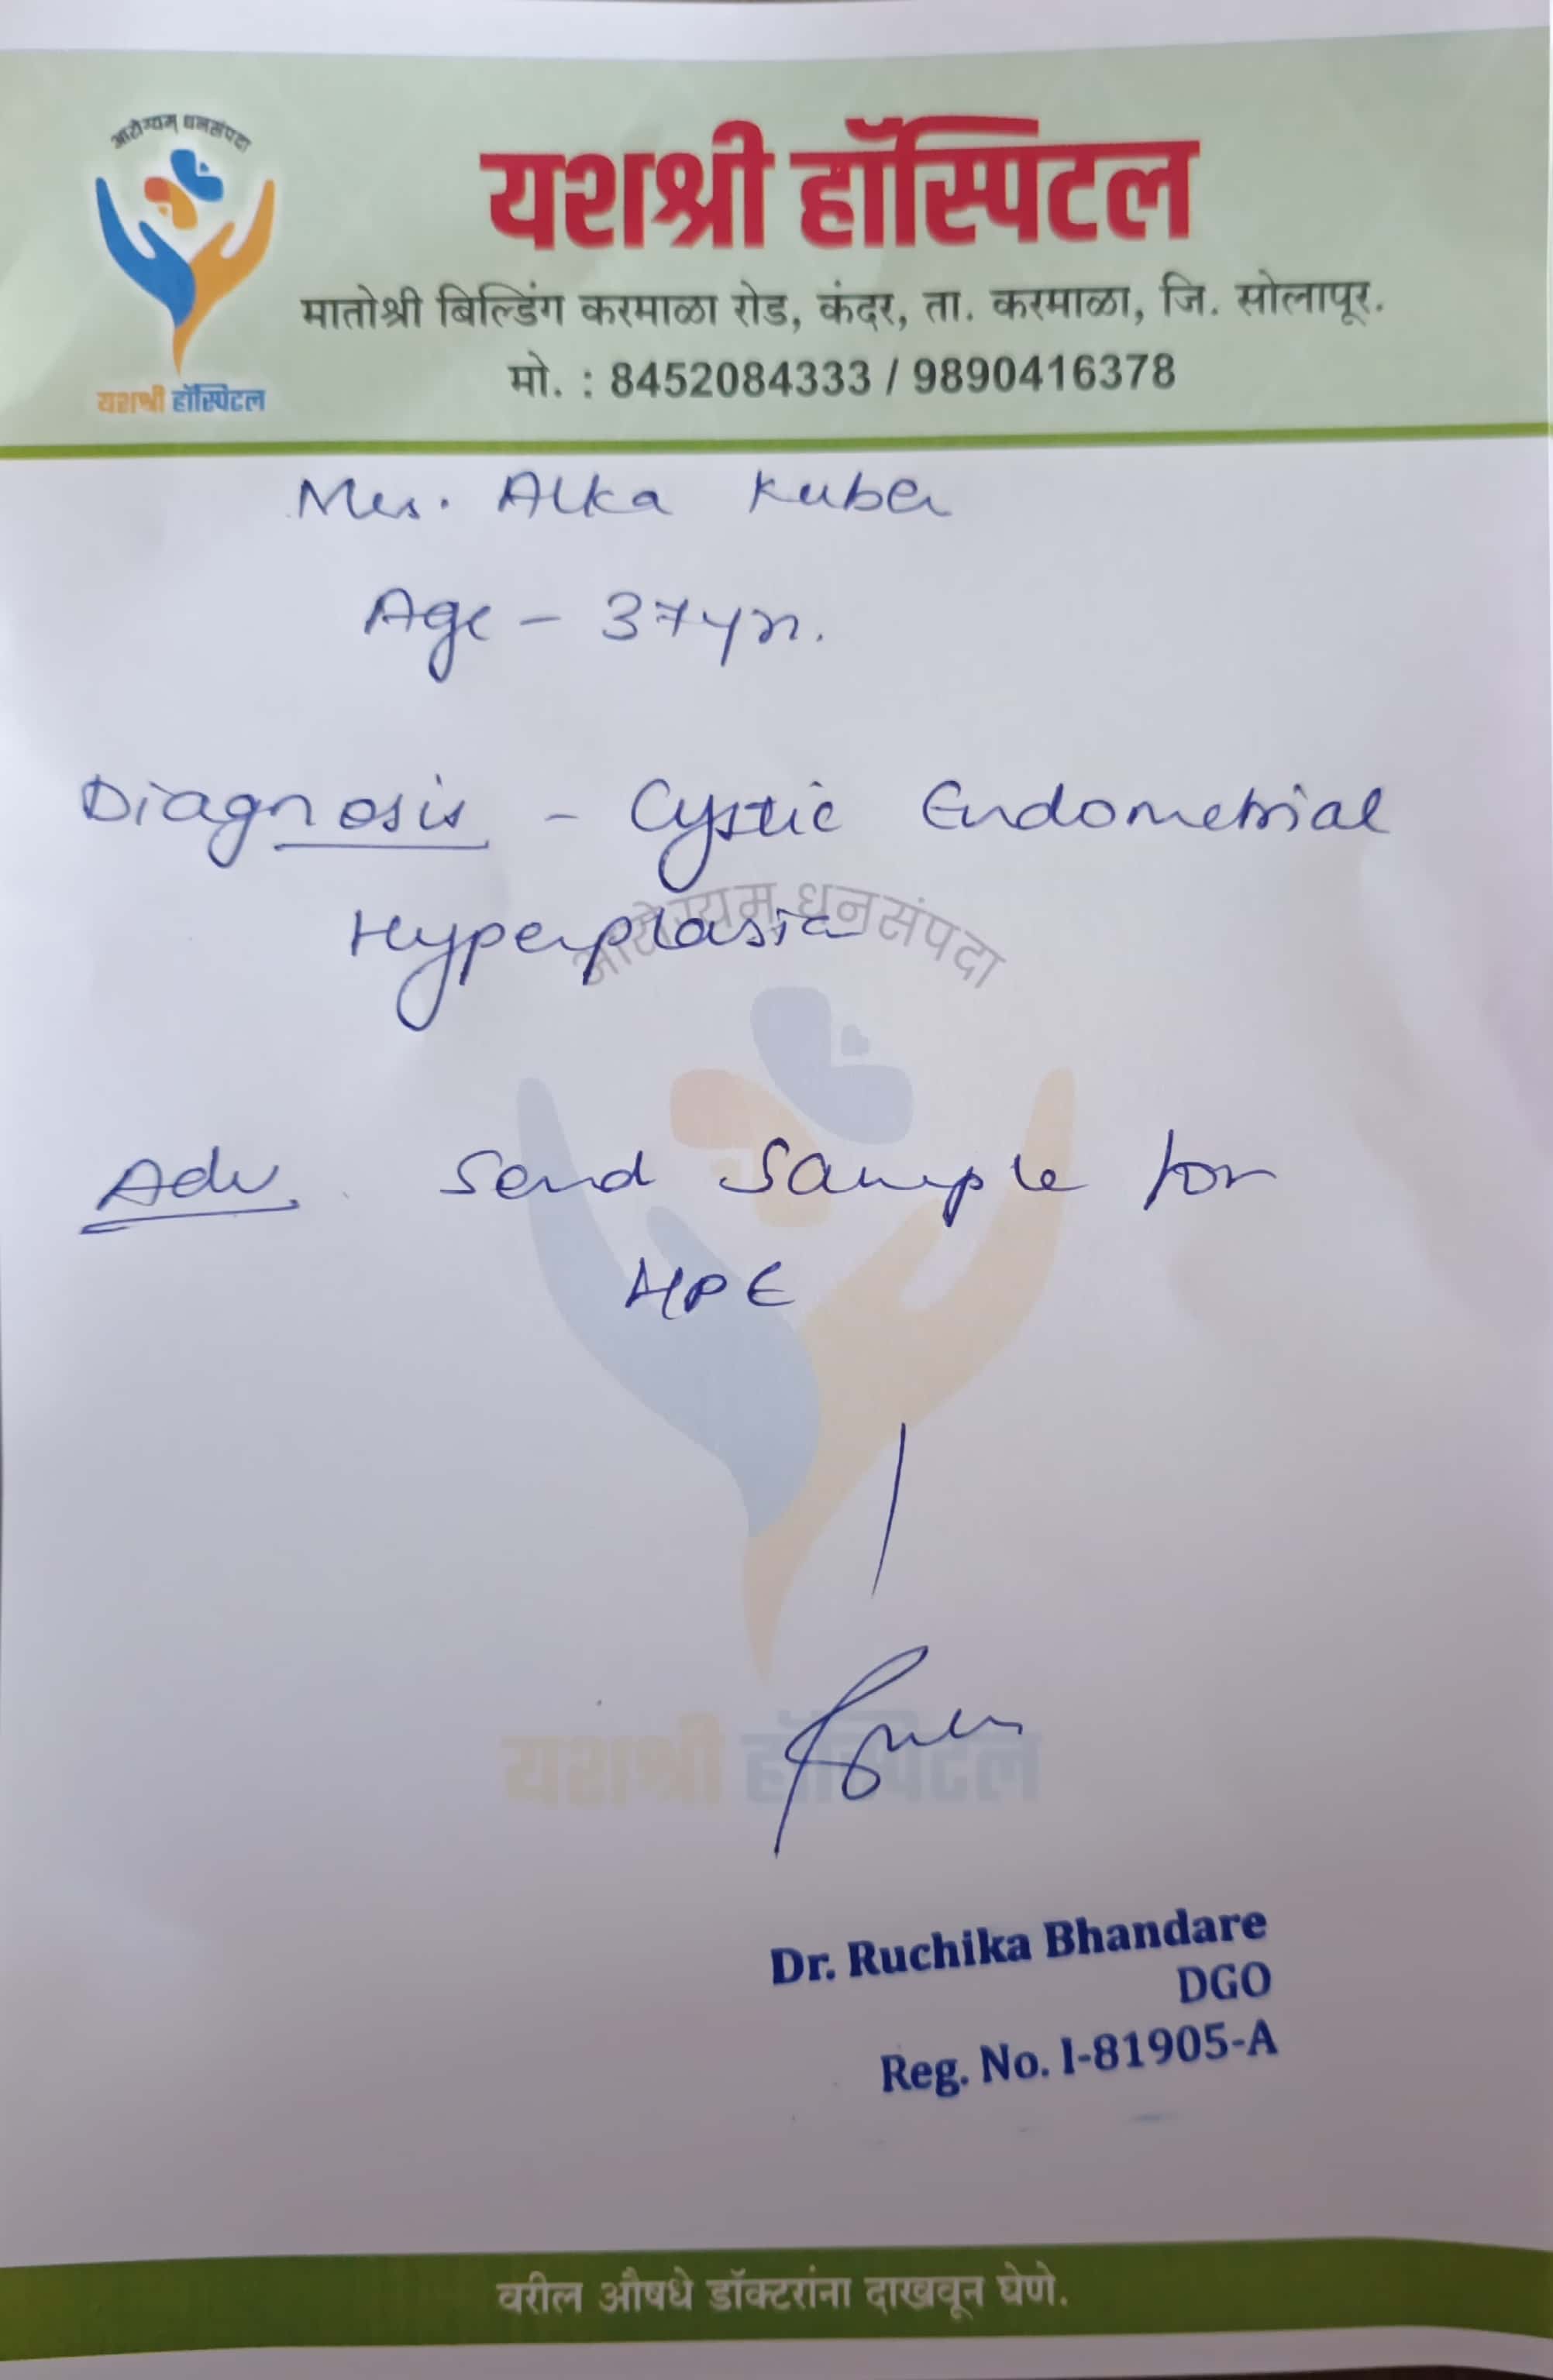 आरोग्यम् धनसंपदा
यशश्री हॉस्पिटल
यशश्री हॉस्पिटल
मातोश्री बिल्डिंग करमाळा रोड, कंदर, ता. करमाळा, जि. सोलापूर.
मो. : 8452084333 / 9890416378
Mrs. Alka Kuber
Age - 37yr.
Diagnosis - Cystic Endometrial
Hyperplasia
आरोग्यम् धनसंपदा
Adv. Send Sample for
HPE
यशश्री हॉस्पिटल
Dr. Ruchika Bhandare
DGO
Reg. No. I-81905-A
वरील औषधे डॉक्टरांना दाखवून घेणे.